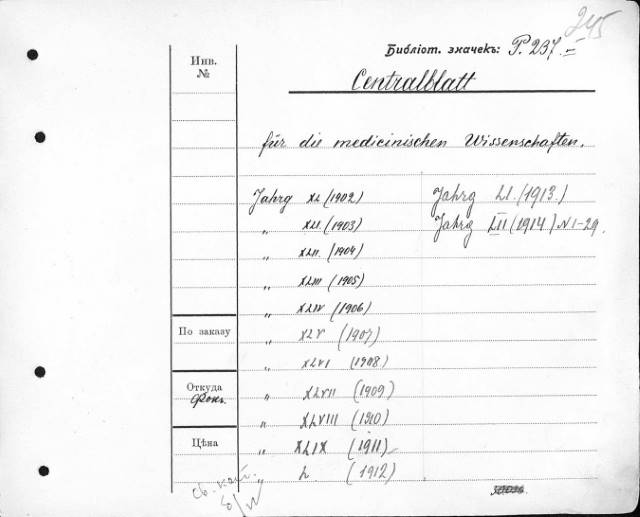 245
Библіот. значекъ: P. 237.
Инв.
№
Centralblatt
für die medicinischen Wissenschaften.
Jahrg XL (1902)
„ XLI. (1903)
„ XLII. (1904)
„ XLIII (1905)
„ XLIV (1906)
„ XLV (1907)
„ XLVI (1908)
„ XLVII (1909)
„ XLVIII (1910)
„ XLIX (1911)
„ L. (1912)
Jahrg LI. (1913.)
Jahrg LII (1914) N 1-29.
По заказу
Откуда
Фокъ.
Цѣна
св. кат.